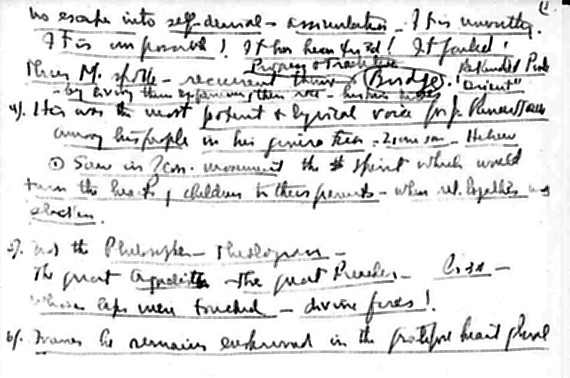 no escape into self-denial - assimilation - It is unworthy.
It is impossible! It has been tried! It failed!
Progress & Tradition
Thus M. spoke - recurrent theme - (Bridge)! "Orient"
- by giving them
4). His was the most potent & lyrical voice for J. Renaissance
among his people in his generation - Zionism - Hebrew
① Saw in Zion. movement the spirit which would
turn the hearts of children to their parents - when
5). the Philosopher - Theologian -
The great - the great Preacher -
whose lips were touched - divine fires!
6). he remains enshrined in the grateful heart